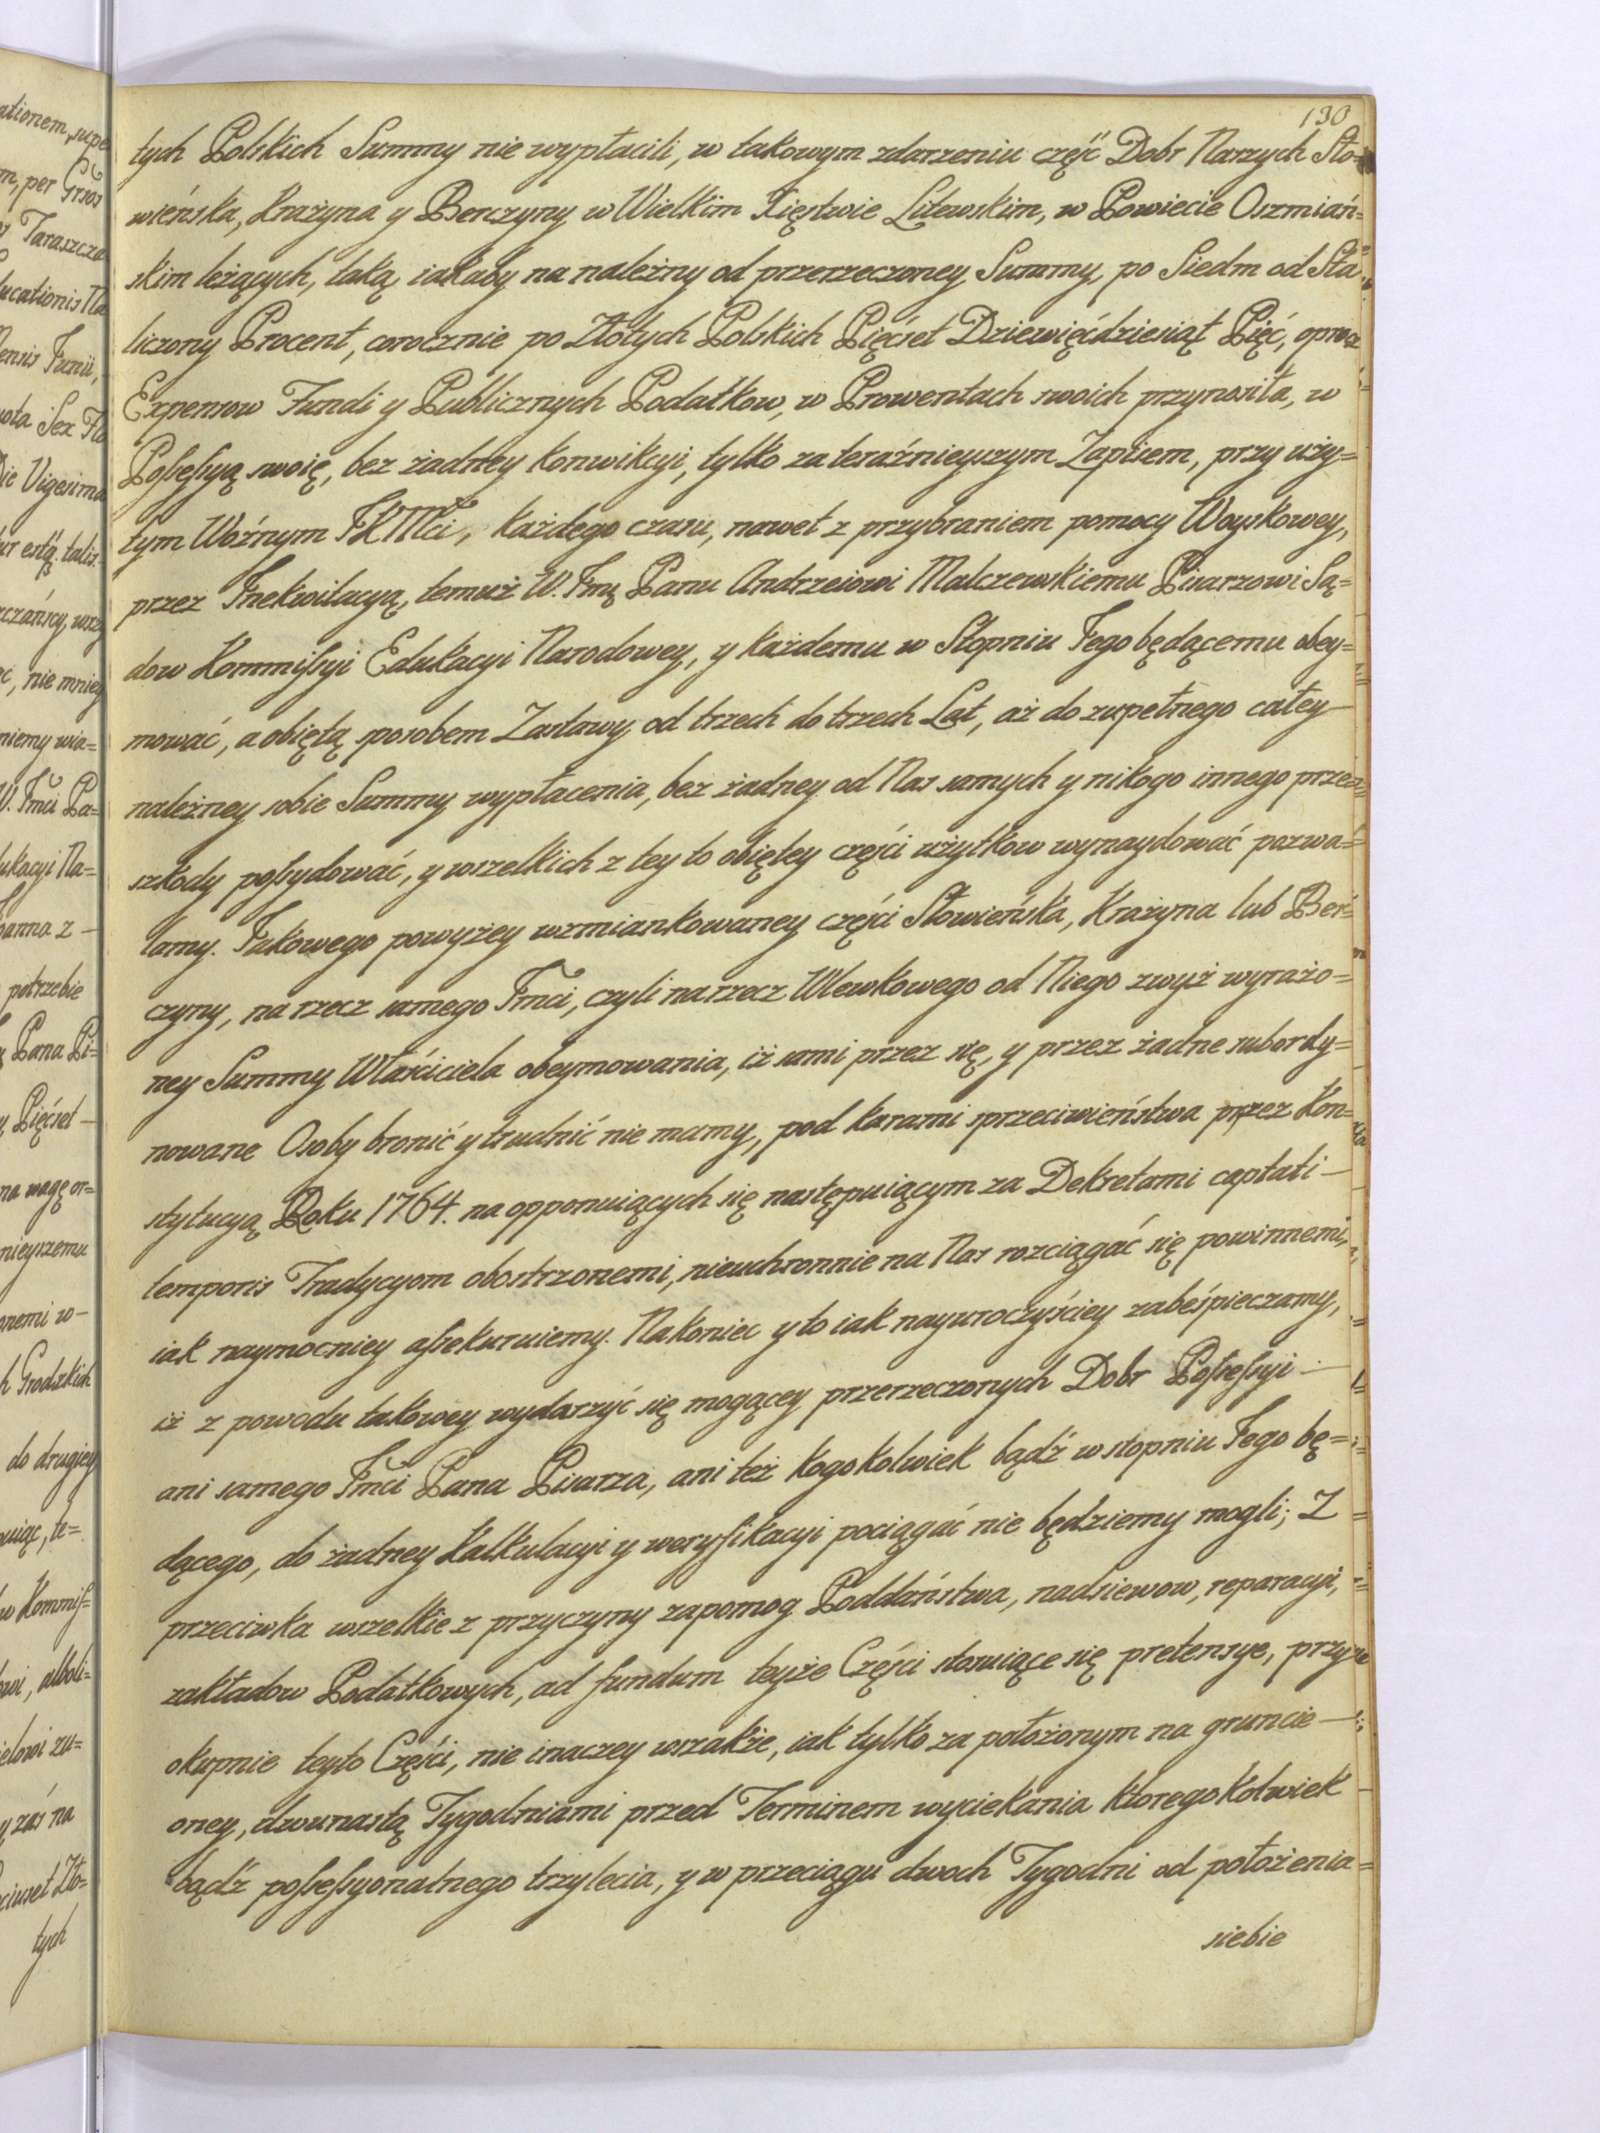 130
tych Polskich Summy nie wypłacili, w takowym zdarzeniu część Dobr Naszych Sło=
wieńska, Krażyna y Berczyny w Wielkim Xięstwie Litewskim, w Powiecie Oszmiań=
skim leżących, taką iakaby na należny od przerzeczoney Summy, po Siedm od Sta
liczony Procent, corocznie po Złotych Polskich Pięćset Dziewięćdziesiąt Pięć, oprocz
Expensow Fundi y Publicznych Podatkow, w Prowentach swoich przynosiła, w
Possessyą swoię, bez żadney konwikcyi, tylko za teraźnieyszym Zapisem, przy uży=
tym Woźnym JKMci, każdego czasu, nawet z przybraniem pomocy Woyskowey,
przez Inekwitacyą, temuż W. Jmę Panu Andrzeiowi Malczewskiemu Pisarzowi Są=
dow Kommissyi Edukacyi Narodowey, y każdemu w Stopniu Jego będącemu obey=
mować, a obiętą sposobem Zastawy od trzech do trzech Lat, aż do zupełnego całey
należney sobie Summy wypłacenia, bez żadney od Nas samych y nikogo innego prze=
szkody possydować, y wszelkich z tey to obiętey części użytkow wynaydować pozwa=
lamy. Jakowego powyżey wzmiankowaney części Słowieńska, Krażyna lub Ber=
czyny, na rzecz samego Jmci, czyli na rzecz Wlewkowego od Niego zwyż wyrażo=
ney Summy Właściciela obeymowania, iż sami przez się, y przez żadne subordy=
nowane Osoby bronić y trudnić nie mamy, pod karami sprzeciwieństwa przez Kon=
stytucyą Roku 1764. na opponuiących się następuiącym za Dekretami captati
temporis Tradycyom obostrzonemi, nieuchronnie na Nas rozciągać się powinnemi,
iak naymocniey assekuruiemy. Nakoniec y to iak nayuroczyściey zabeśpieczamy,
iż z powodu takowey wydarzyć się mogącey przerzeczonych Dobr Possessyi
ani samego Jmci Pana Pisarza, ani też kogokolwiek bądź w stopniu Jego bę=
dącego, do żadney Kalkulacyi y weryfikacyi pociągać nie będziemy mogli; Z
przeciwka wszelkie z przyczyny zapomog Poddaństwa, nadsiewow, reparacyi,
zakładow Podatkowych, ad fundum teyże Części stosuiące się pretensye, przy
okupnie teyto Części, nie inaczey wszakże, iak tylko za położonym na gruncie
oney, dwunastą Tygodniami przed Terminem wyciekania ktoregokolwiek
bądź possessyonalnego trzylecia, y w przeciągu dwoch Tygodni od położenia
siebie